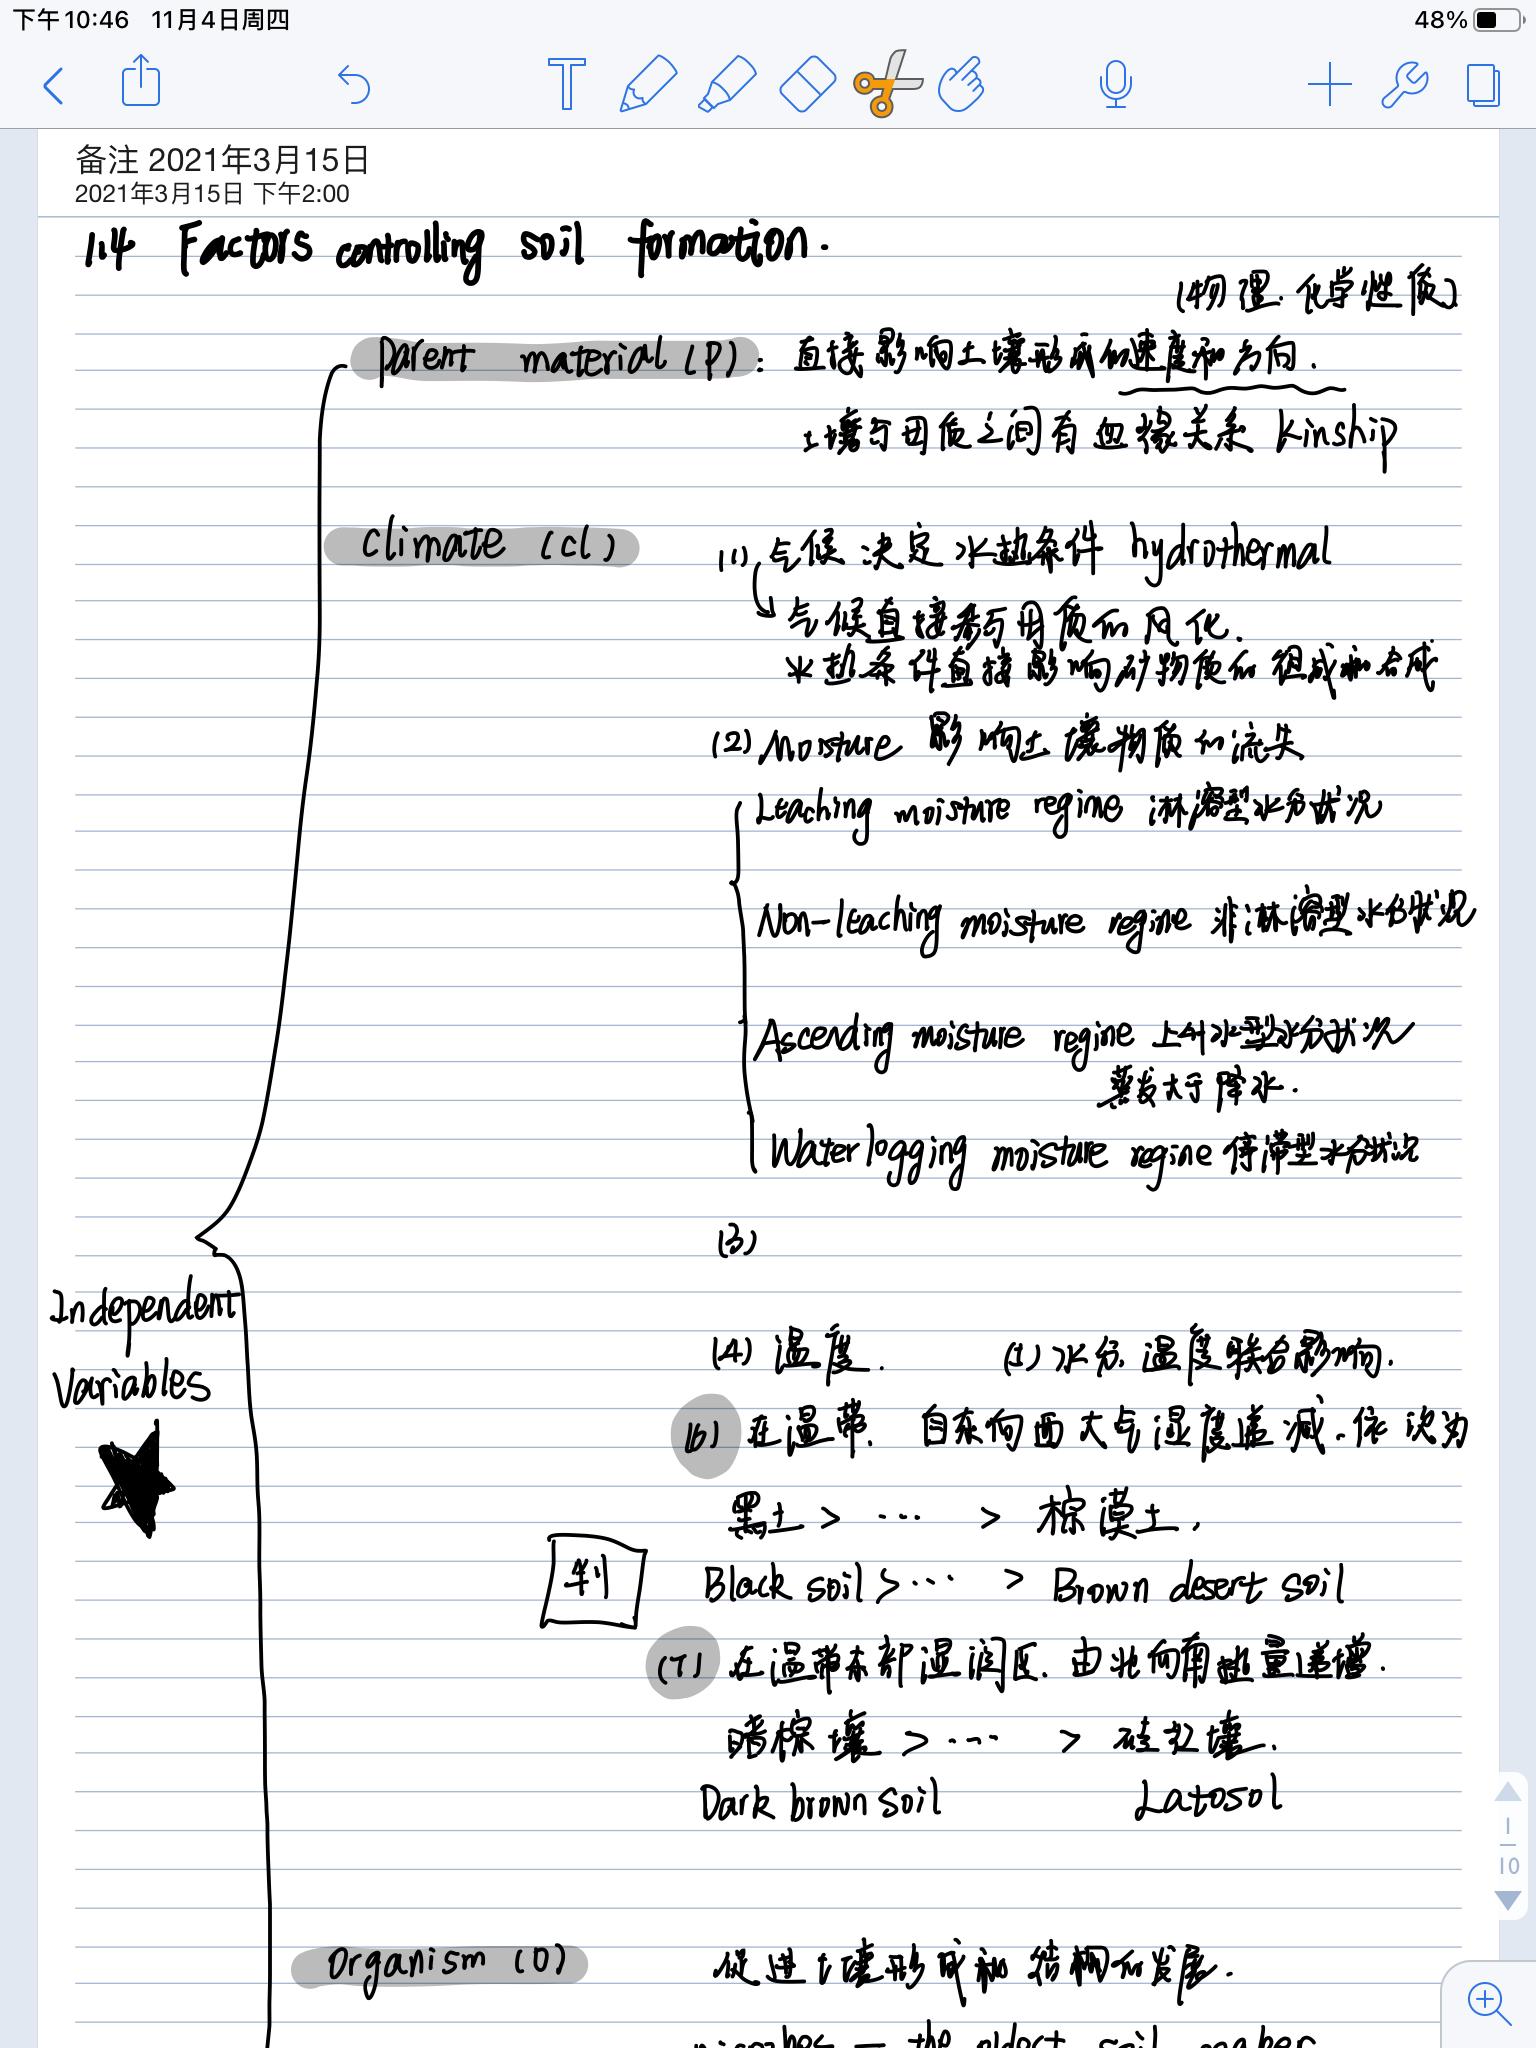 下午10:46 11月4日周四 48%
备注 2021年3月15日
2021年3月15日 下午2:00
1.4 Factors controlling soil formation.
(物理.化学性质)
Parent material (P): 直接影响土壤形成的速度和方向.
土壤与母质之间有血缘关系 kinship
Climate (cl)
(1) 气候决定水热条件 hydrothermal
气候直接参与母质的风化.
水热条件直接影响矿物质的组成和合成
(2) Moisture 影响土壤物质的流失
Leaching moisture regime 淋溶型水分状况
Non-leaching moisture regime 非淋溶型水分状况
Ascending moisture regime 上升水型水分状况
蒸发大于降水.
Waterlogging moisture regime 停滞型水分状况
(3)
Independent
Variables
(4) 温度. (5) 水分.温度联合影响.
(6) 在温带. 自东向西大气湿度递减.依次为
黑土 > ... > 棕漠土.
判
Black soil > ... > Brown desert soil
(7) 在温带东部湿润区.由北向南热量递增.
暗棕壤 > ... > 砖红壤.
Dark brown soil Latosol
1
10
Organism (O) 促进土壤形成和结构的发展.
microbes — the oldest soil maker